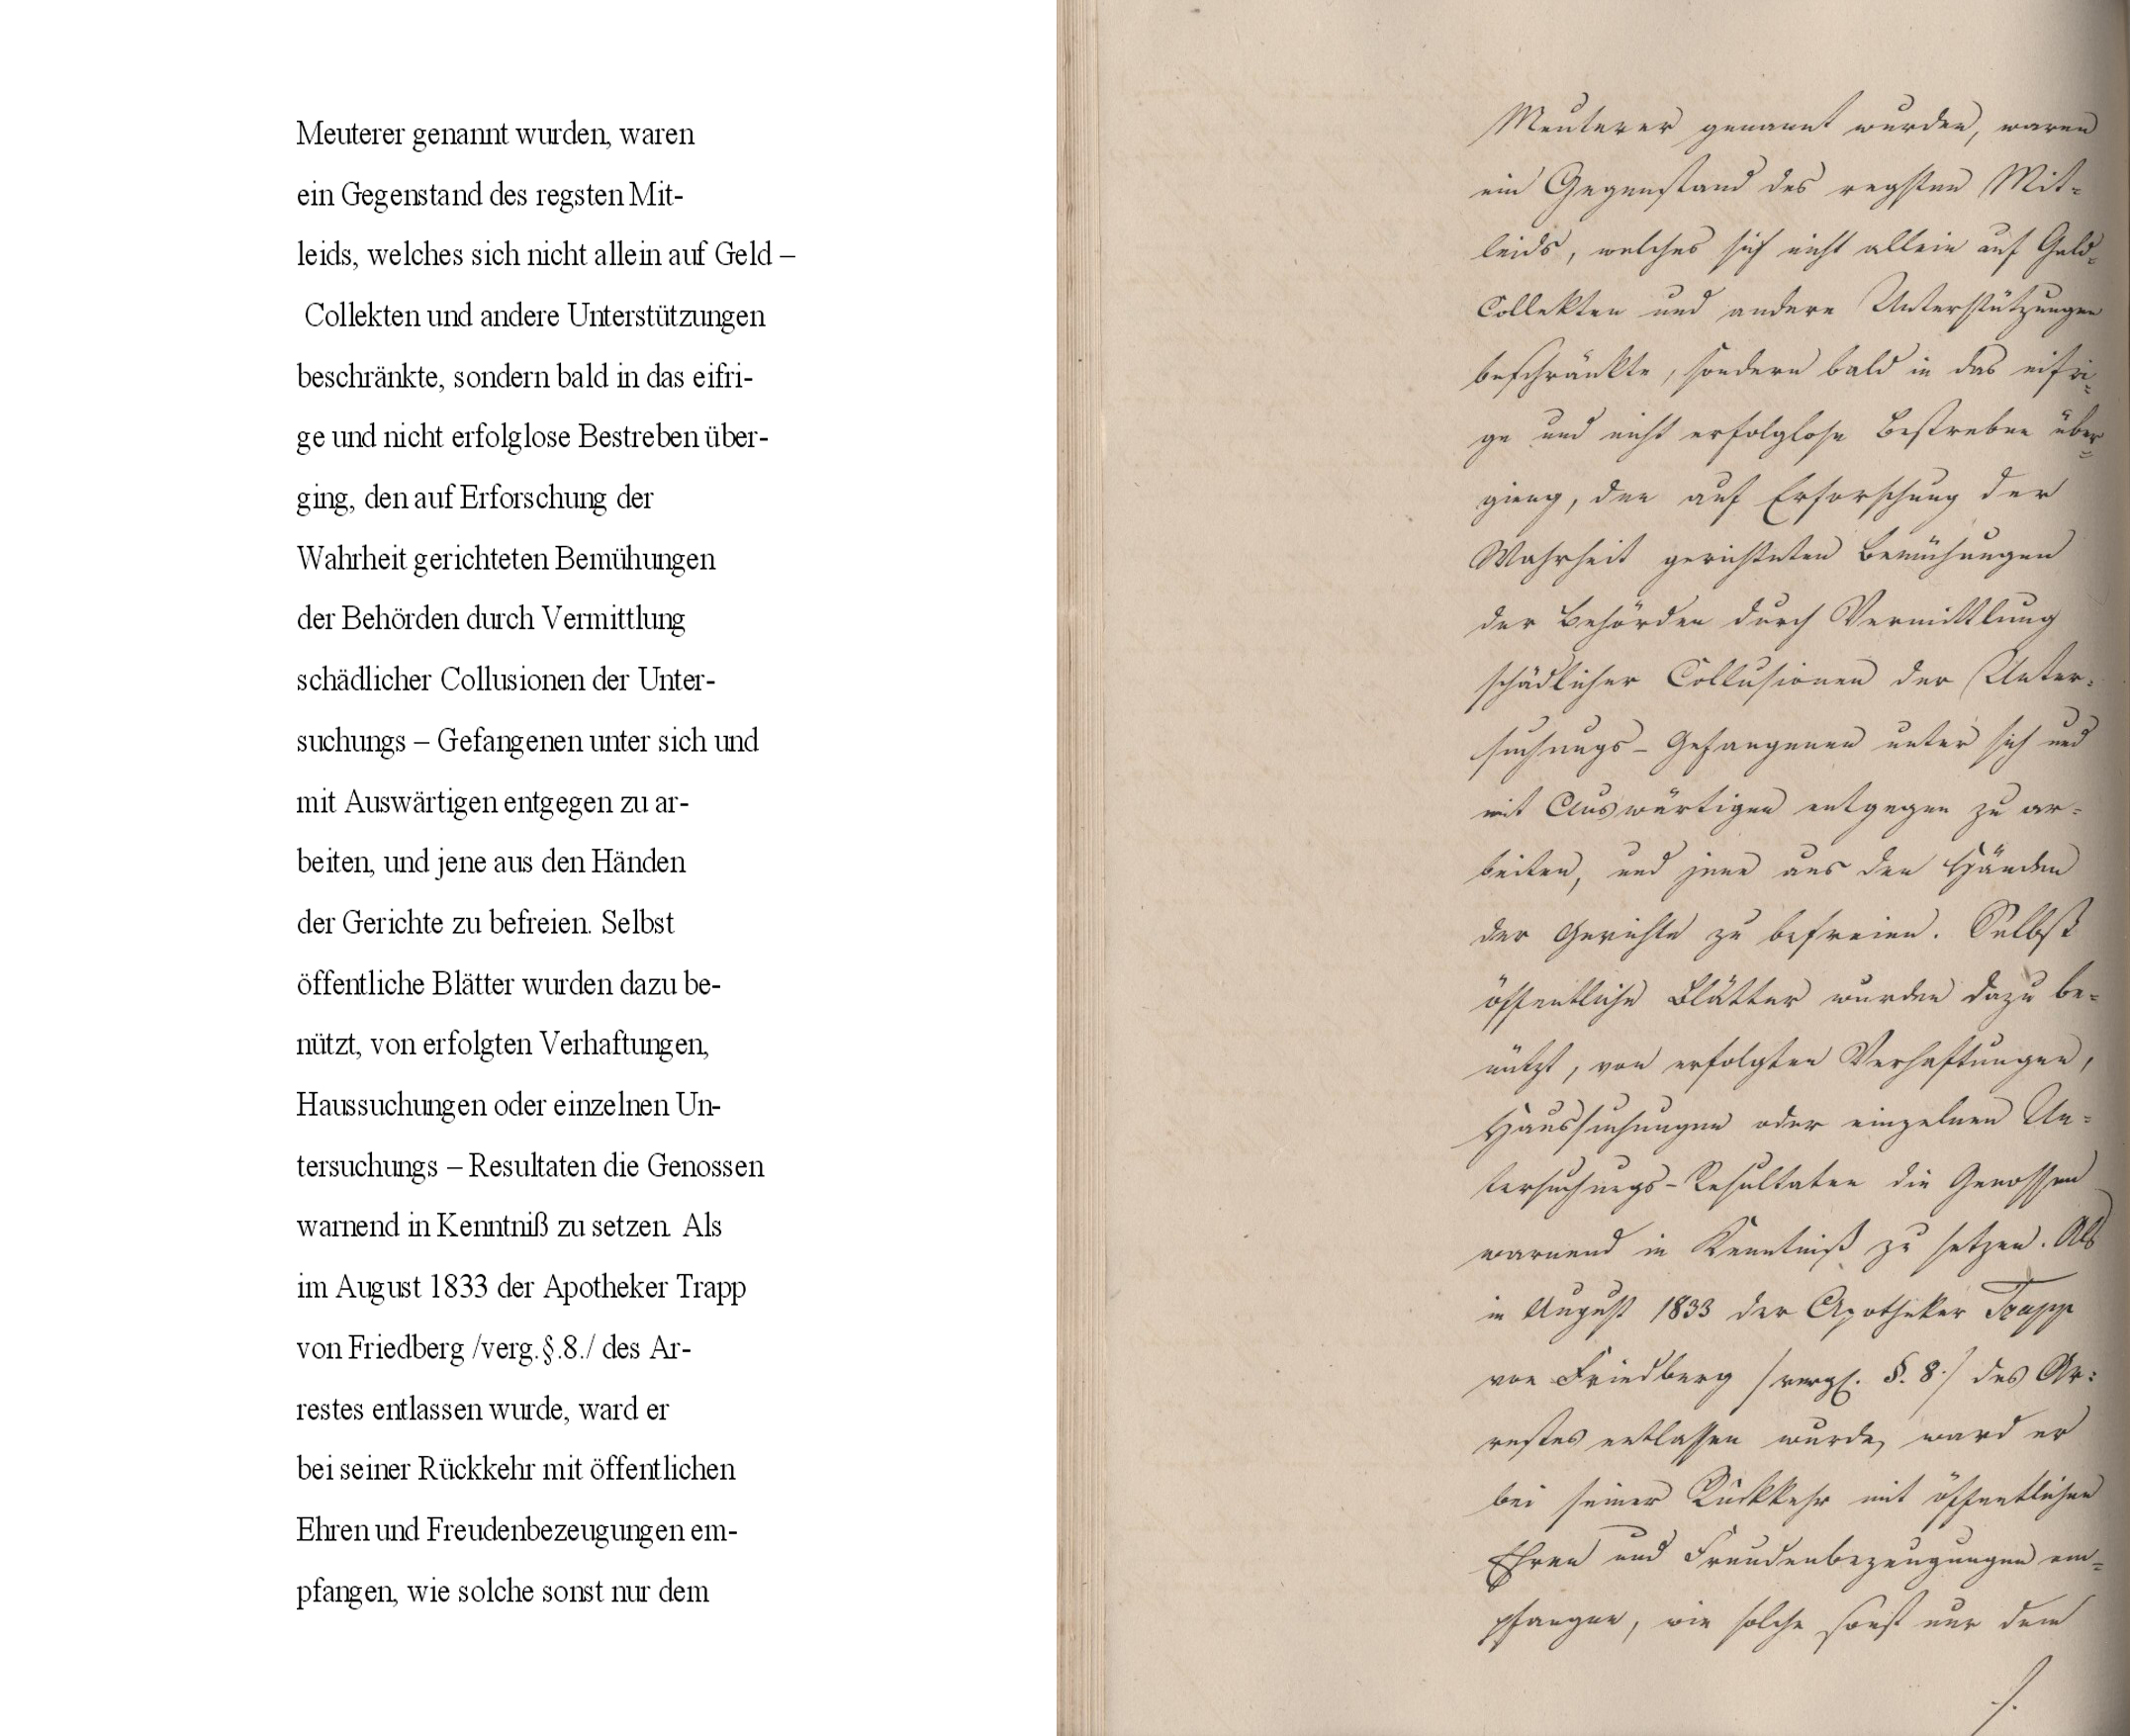 Meuterer genannt wurden, waren
ein Gegenstand des regsten Mit-
leids, welches sich nicht allein auf Geld –
Collekten und andere Unterstützungen
beschränkte, sondern bald in das eifri-
ge und nicht erfolglose Bestreben über-
ging, den auf Erforschung der
Wahrheit gerichteten Bemühungen
der Behörden durch Vermittlung
schädlicher Collusionen der Unter-
suchungs – Gefangenen unter sich und
mit Auswärtigen entgegen zu ar-
beiten, und jene aus den Händen
der Gerichte zu befreien. Selbst
öffentliche Blätter wurden dazu be-
nützt, von erfolgten Verhaftungen,
Haussuchungen oder einzelnen Un-
tersuchungs – Resultaten die Genossen
warnend in Kenntniß zu setzen. Als
im August 1833 der Apotheker Trapp
von Friedberg /verg.§.8./ des Ar-
restes entlassen wurde, ward er
bei seiner Rückkehr mit öffentlichen
Ehren und Freudenbezeugungen em-
pfangen, wie solche sonst nur dem
Meuterer genannt wurden, waren
ein Gegenstand des regsten Mit=
leids, welches sich nicht allein auf Geld-
Collekten und andere Unterstützungen
beschränkte, sondern bald in das eifri=
ge und nicht erfolglose Bestreben über=
gieng, den auf Erforschung der
Wahrheit gerichteten Bemühungen
der Behörden durch Vermittlung
schädlicher Collusionen der Unter=
suchungs- Gefangenen unter sich und
mit Auswärtigen entgegen zu ar=
beiten, und jene aus den Händen
der Gerichte zu befreien. Selbst
öffentliche Blätter wurden dazu be=
nützt, von erfolgten Verhaftungen,
Haussuchungen oder einzelnen Un=
tersuchungs-Resultaten die Genossen
warnend in Kenntniß zu setzen. Als
im August 1833 der Apotheker Trapp
von Friedberg /vergl. §. 8./ des Ar=
restes entlassen wurde, ward er
bei seiner Rückkehr mit öffentlichen
Ehren und Freudenbezeugungen em=
pfangen, wie solche sonst nur dem
./.